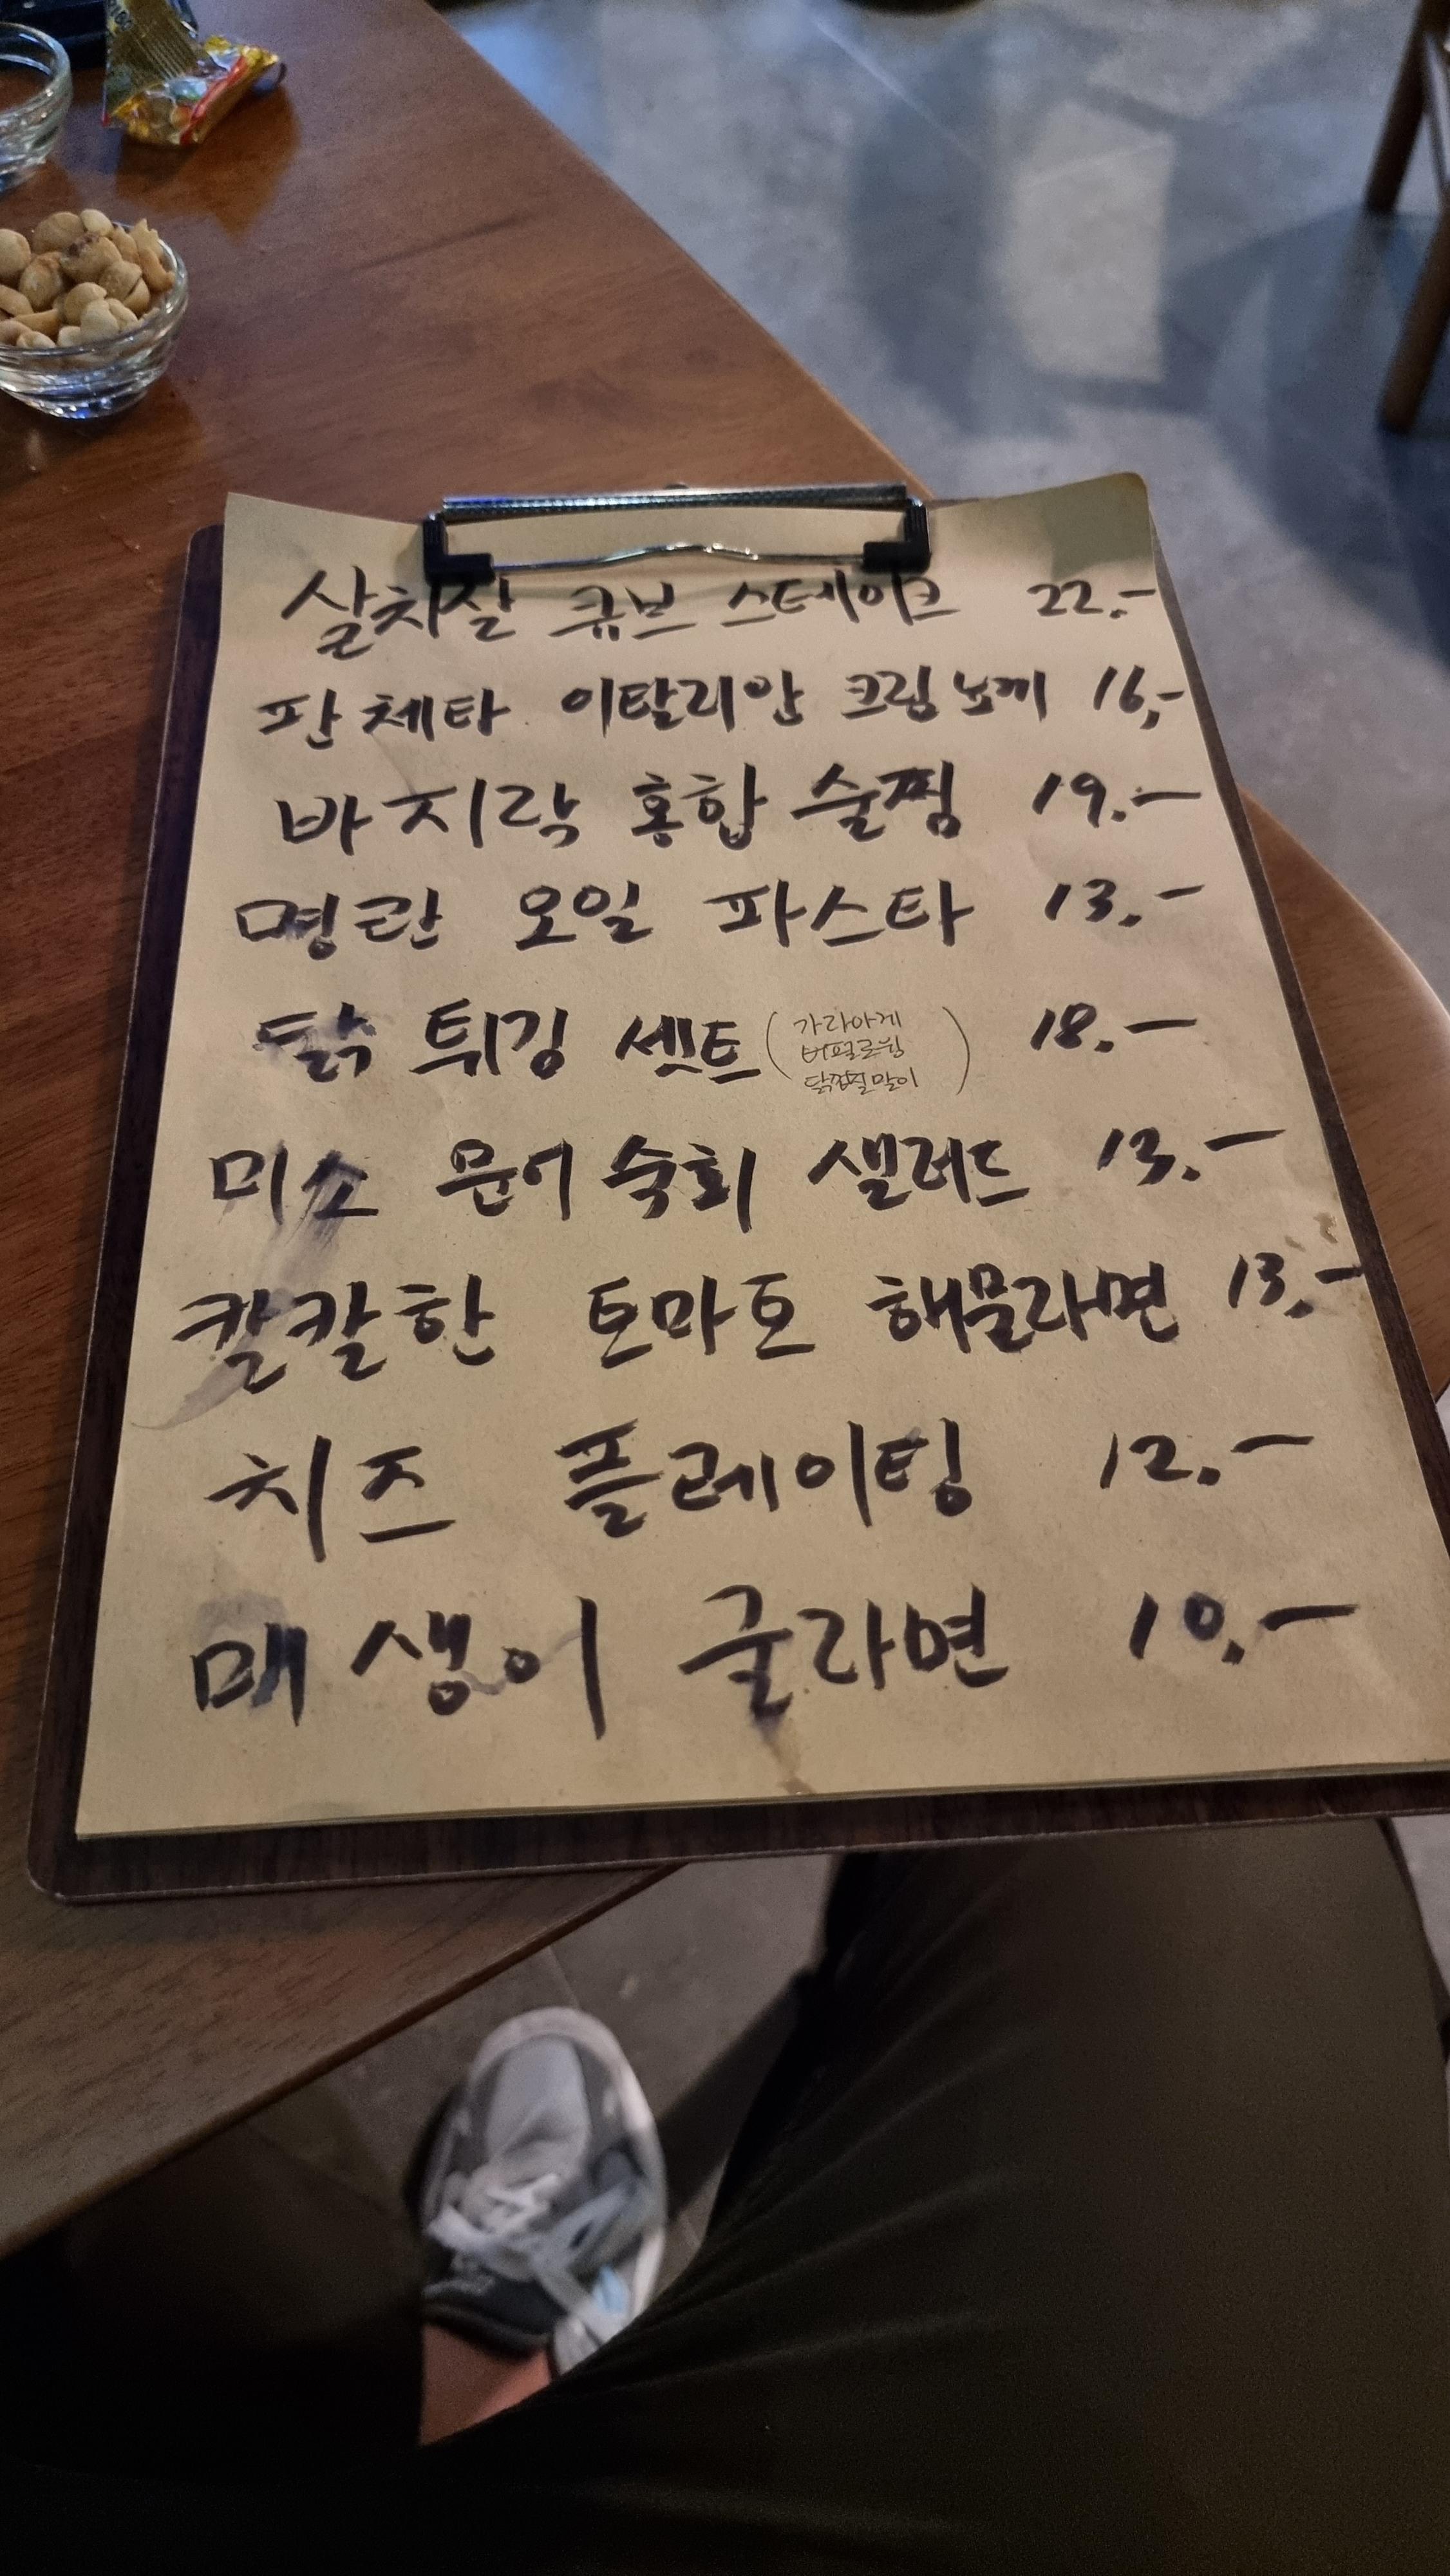 살치살 큐브 스테이크 22.-
판체타 이탈리안 크림 뇨끼 16,-
바지락 홍합 술찜 19.-
명란 오일 파스타 13.-
닭 튀김 셋트 (가라아게 18.-
버팔로윙
닭껍질말이)
미소 문어 숙회 샐러드 13.-
칼칼한 토마토 해물라면 13.-
치즈 플레이팅 12.-
매생이 굴라면 10.-